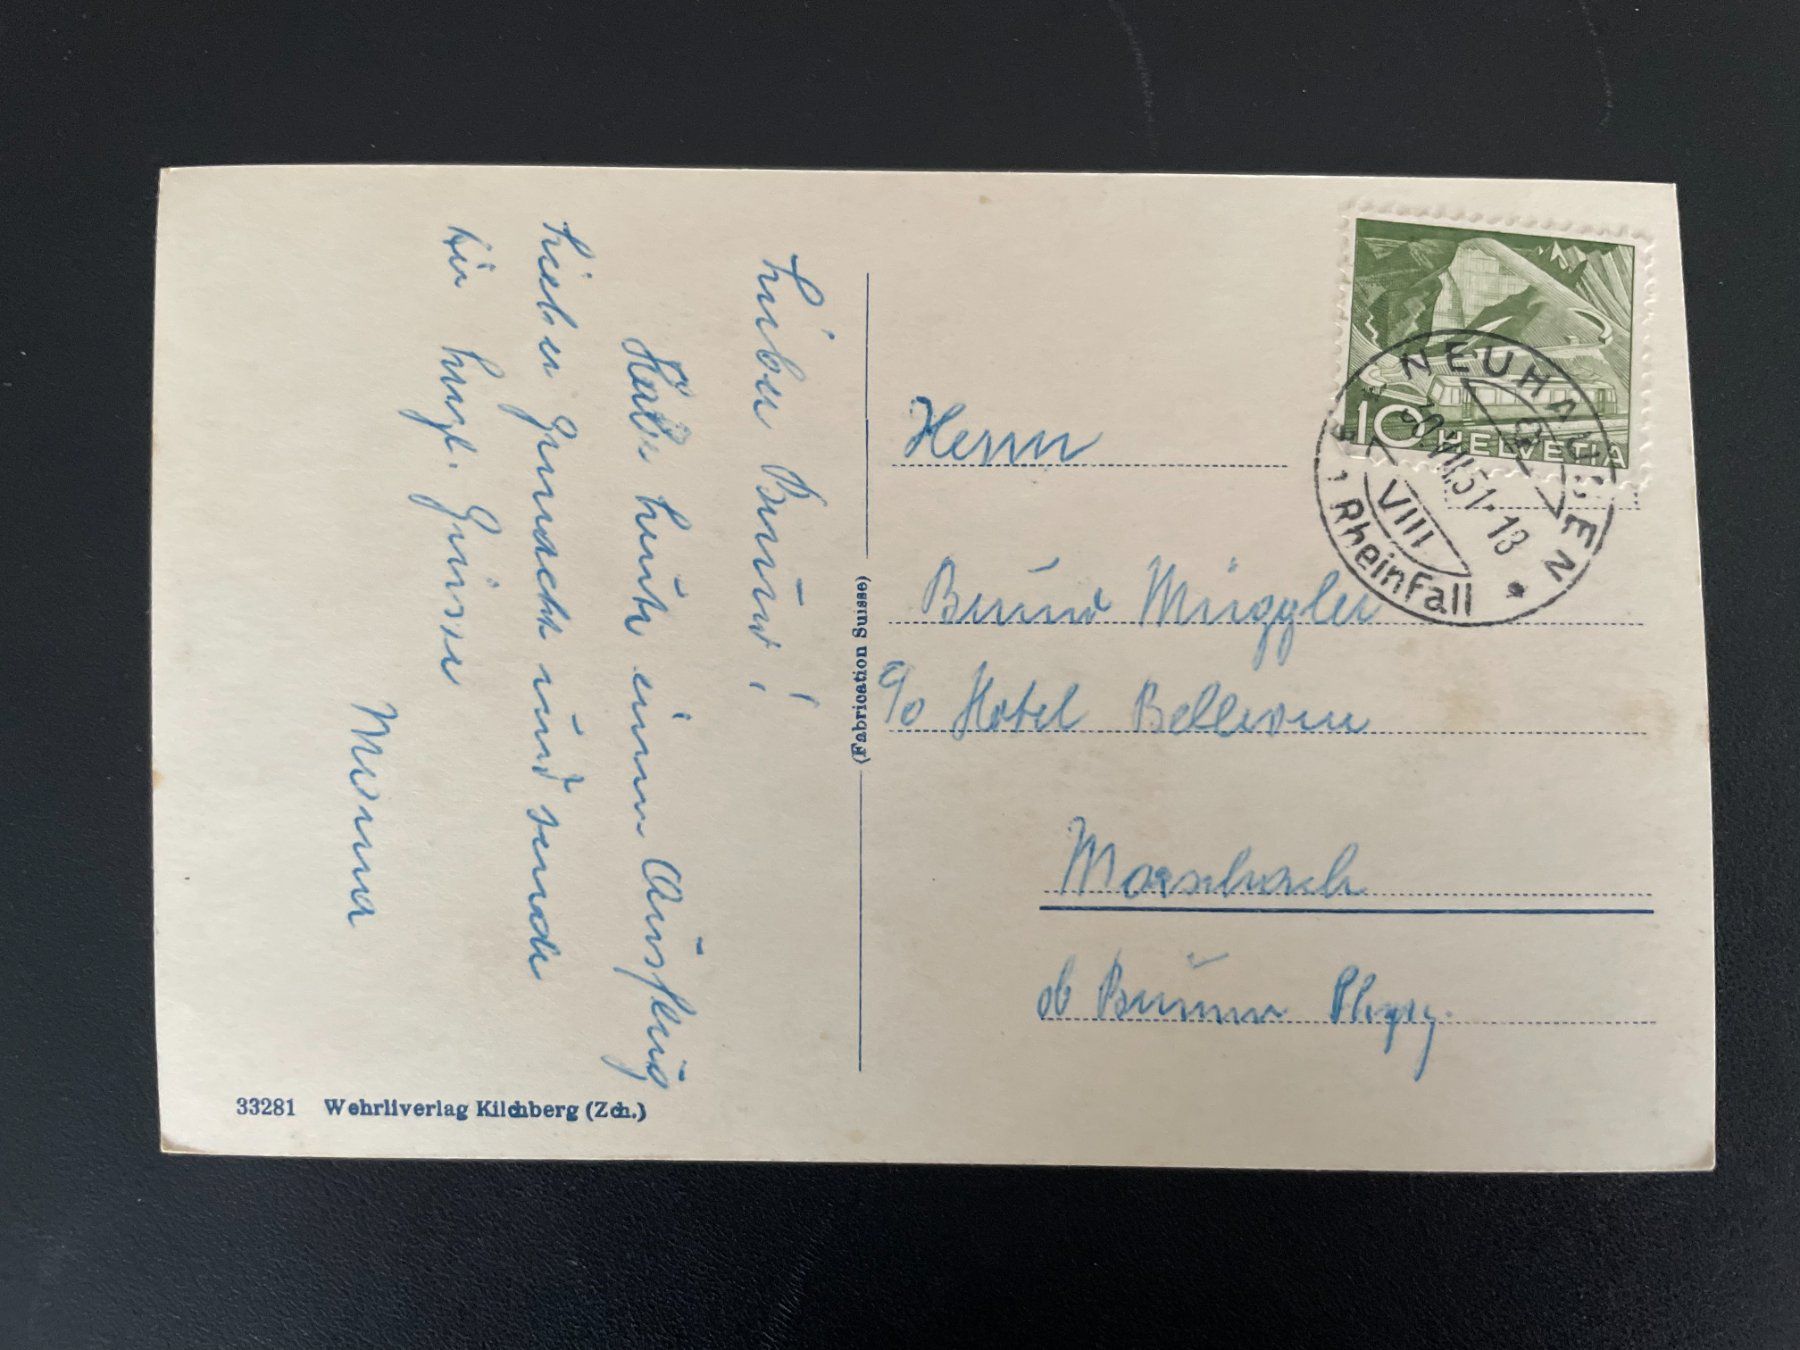 Lieber Bruno!
Habe heute einen Ausflug
hieher gemacht und sende
Dir herzl. Grüsse
Mama
(Fabrication Suisse)
33281 Wehrliverlag Kilchberg (Zch.)
10 HELVETIA
NEUHAUSEN
VII.51-18
VIII
Rheinfall
Herrn
Bruno Müggler
c/o Hotel Bellevue
Morschach
ob Brunnen